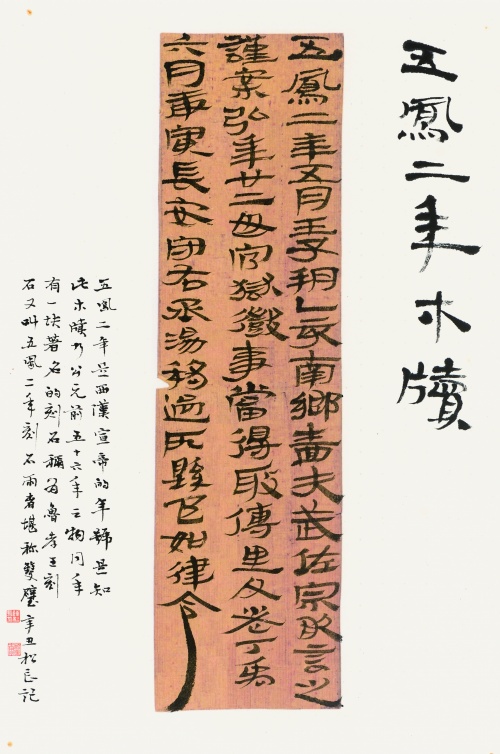 五鳳二年木牘
五鳳二年五月壬子朔乙亥南鄉嗇夫武佐宗敢言之
謹案弘年廿二毋官獄徵事當得取傳里父老丁禹
六月庚寅長安守右丞湯移過所縣邑如律令
五鳳二年是西漢宣帝的年號是知
此木牘為公元前五十六年之物同年
有一块著名的刻石稱為魯孝王刻
石又叫五鳳二年刻石兩者堪称雙璧辛丑松記